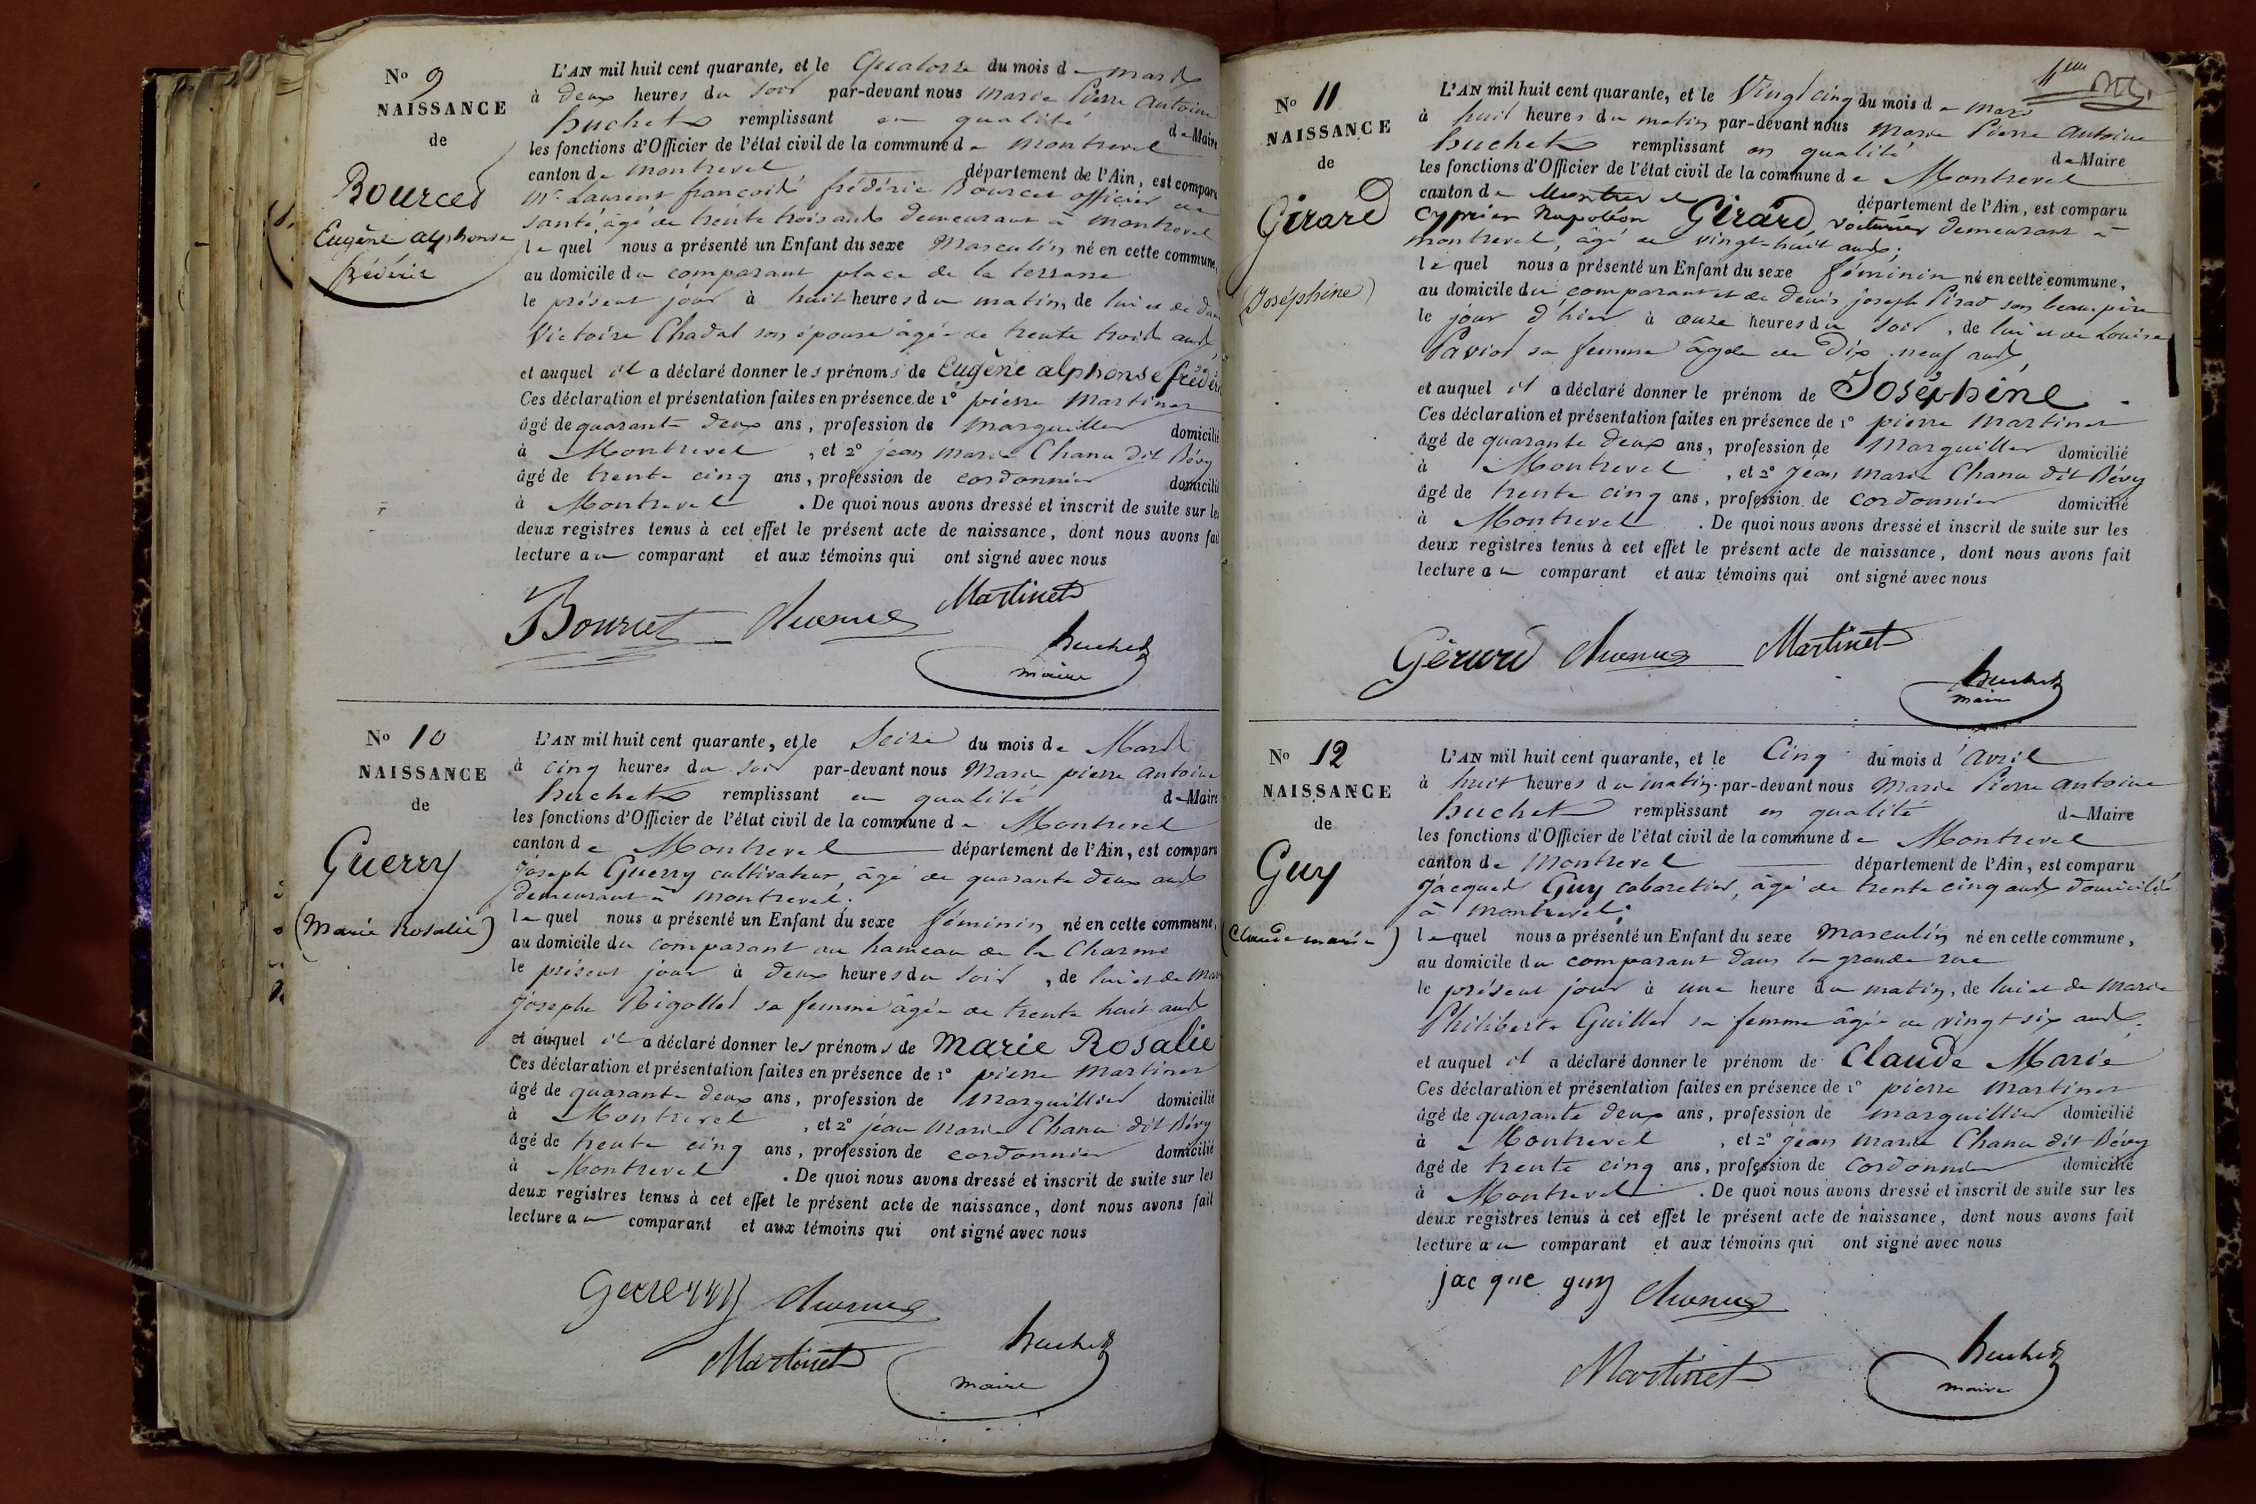 No 9
NAISSANCE
de
Bourcet
Eugène alphonse
frédéric
L'AN mil huit cent quarante, et le Quatorze du mois de mars
à deux heures du soir par-devant nous Marie Pierre Antoine
huchet remplissant en qualité de Maire
les fonctions d'Officier de l'état civil de la commune de Montrevel
canton de Montrevel département de l'Ain, est comparu
Mr. Laurent françois frédéric Bourcet officier de
santé, âgé de trente trois ans demeurant à Montrevel
lequel nous a présenté un Enfant du sexe Masculin, né en cette commune,
au domicile du comparant place de la terrasse
le présent jour à huit heures du matin, de lui et de
Victoire Chadal son épouse âgée de trente trois ans
et auquel il a déclaré donner les prénoms de Eugène alphonse frédéri
Ces déclaration et présentation faites en présence de 1° pierre Martinet
âgé de quarante deux ans, profession de Marguillier domicilié
à Montrevel, et 2° jean Marie Chanu dit Bévy
âgé de trente cinq ans, profession de cordonnier domicilié
à Montrevel. De quoi nous avons dressé et inscrit de suite sur les
deux registres tenus à cet effet le présent acte de naissance, dont nous avons fait
lecture au comparant et aux témoins qui ont signé avec nous
Bourcet Martinet
huchet
maire
No 10
NAISSANCE
de
Guerry
(Marie Rosalie)
L'AN mil huit cent quarante, et le Seize du mois de Mars
à cinq heures du soir par-devant nous Marie pierre Antoine
huchet remplissant en qualité de Maire
les fonctions d'Officier de l'état civil de la commune de Montrevel
canton de Montrevel département de l'Ain, est comparu
Joseph Guerry cultivateur, âgé de quarante deux ans
demeurant à Montrevel.
lequel nous a présenté un Enfant du sexe féminin né en cette commune,
au domicile du comparant au hameau de la Charme
le présent jour à deux heures du soir, de lui et de Marie
Josephe Rigollet sa femme âgée de trente huit ans
et auquel il a déclaré donner les prénoms de Marie Rosalie
Ces déclaration et présentation faites en présence de 1° pierre Martinet
âgé de quarante deux ans, profession de Marguillier domicilié
à Montrevel, et 2° jean Marie Chanu dit Bévy
âgé de trente cinq ans, profession de cordonnier domicilié
à Montrevel. De quoi nous avons dressé et inscrit de suite sur les
deux registres tenus à cet effet le présent acte de naissance, dont nous avons fait
lecture au comparant et aux témoins qui ont signé avec nous
Guerry
Martinet huchet
maire
No 11
NAISSANCE
de
Girard
(Joséphine)
L'AN mil huit cent quarante, et le Vingt cinq du mois de mars
à huit heures du matin par-devant nous Marie Pierre Antoine
huchet remplissant en qualité de Maire
les fonctions d'Officier de l'état civil de la commune de Montrevel
canton de Montrevel département de l'Ain, est comparu
Cyprien Napoléon Girard, voiturier demeurant à
Montrevel, âgé de vingt-huit ans.
lequel nous a présenté un Enfant du sexe féminin né en cette commune,
au domicile du comparant et de denis joseph son beau-père
le jour d'hier à onze heures du soir, de lui et de Louise
sa femme âgée de Dix neuf ans
et auquel il a déclaré donner le prénom de Joséphine.
Ces déclaration et présentation faites en présence de 1° pierre Martinet
âgé de quarante deux ans, profession de Marguillier domicilié
à Montrevel, et 2° Jean Marie Chanu dit Bévy
âgé de trente cinq ans, profession de cordonnier domicilié
à Montrevel. De quoi nous avons dressé et inscrit de suite sur les
deux registres tenus à cet effet le présent acte de naissance, dont nous avons fait
lecture au comparant et aux témoins qui ont signé avec nous
Gérard Martinet
huchet
maire
No 12
NAISSANCE
de
Guy
(Claude marie)
L'AN mil huit cent quarante, et le Cinq du mois d'avril
à huit heures du matin par-devant nous Marie Pierre Antoine
huchet remplissant en qualité de Maire
les fonctions d'Officier de l'état civil de la commune de Montrevel
canton de Montrevel département de l'Ain, est comparu
Jacques Guy cabaretier, âgé de trente cinq ans domicilié
à Montrevel.
lequel nous a présenté un Enfant du sexe masculin né en cette commune,
au domicile du comparant dans la grande rue
le présent jour à une heure du matin, de lui et de Marie
Philiberte Guillet sa femme âgée de vingt six ans.
et auquel il a déclaré donner le prénom de Claude Marie
Ces déclaration et présentation faites en présence de 1° pierre Martinet
âgé de quarante deux ans, profession de marguillier domicilié
à Montrevel, et 2° jean Marie Chanu dit Bévy
âgé de trente cinq ans, profession de cordonnier domicilié
à Montrevel. De quoi nous avons dressé et inscrit de suite sur les
deux registres tenus à cet effet le présent acte de naissance, dont nous avons fait
lecture au comparant et aux témoins qui ont signé avec nous
jacque guy
Martinet huchet
maire